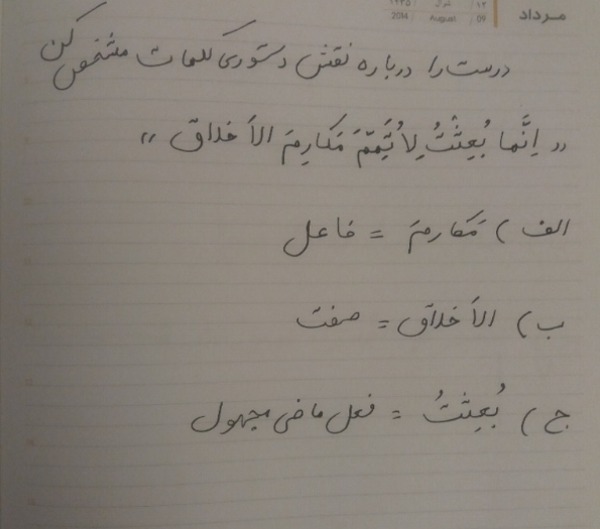 مرداد
۱۳ شوال ۱۴۳۵
09 August 2014
درست را درباره نقش دستوری کلمات مشخص کن
« اِنَّما بُعِثْتُ لِاُتَمِّمَ مَکارِمَ الاَخلاق »
الف) مَکارمَ = فاعل
ب) الاَخلاق = صفت
ج) بُعِثتُ = فعل ماضی مجهول